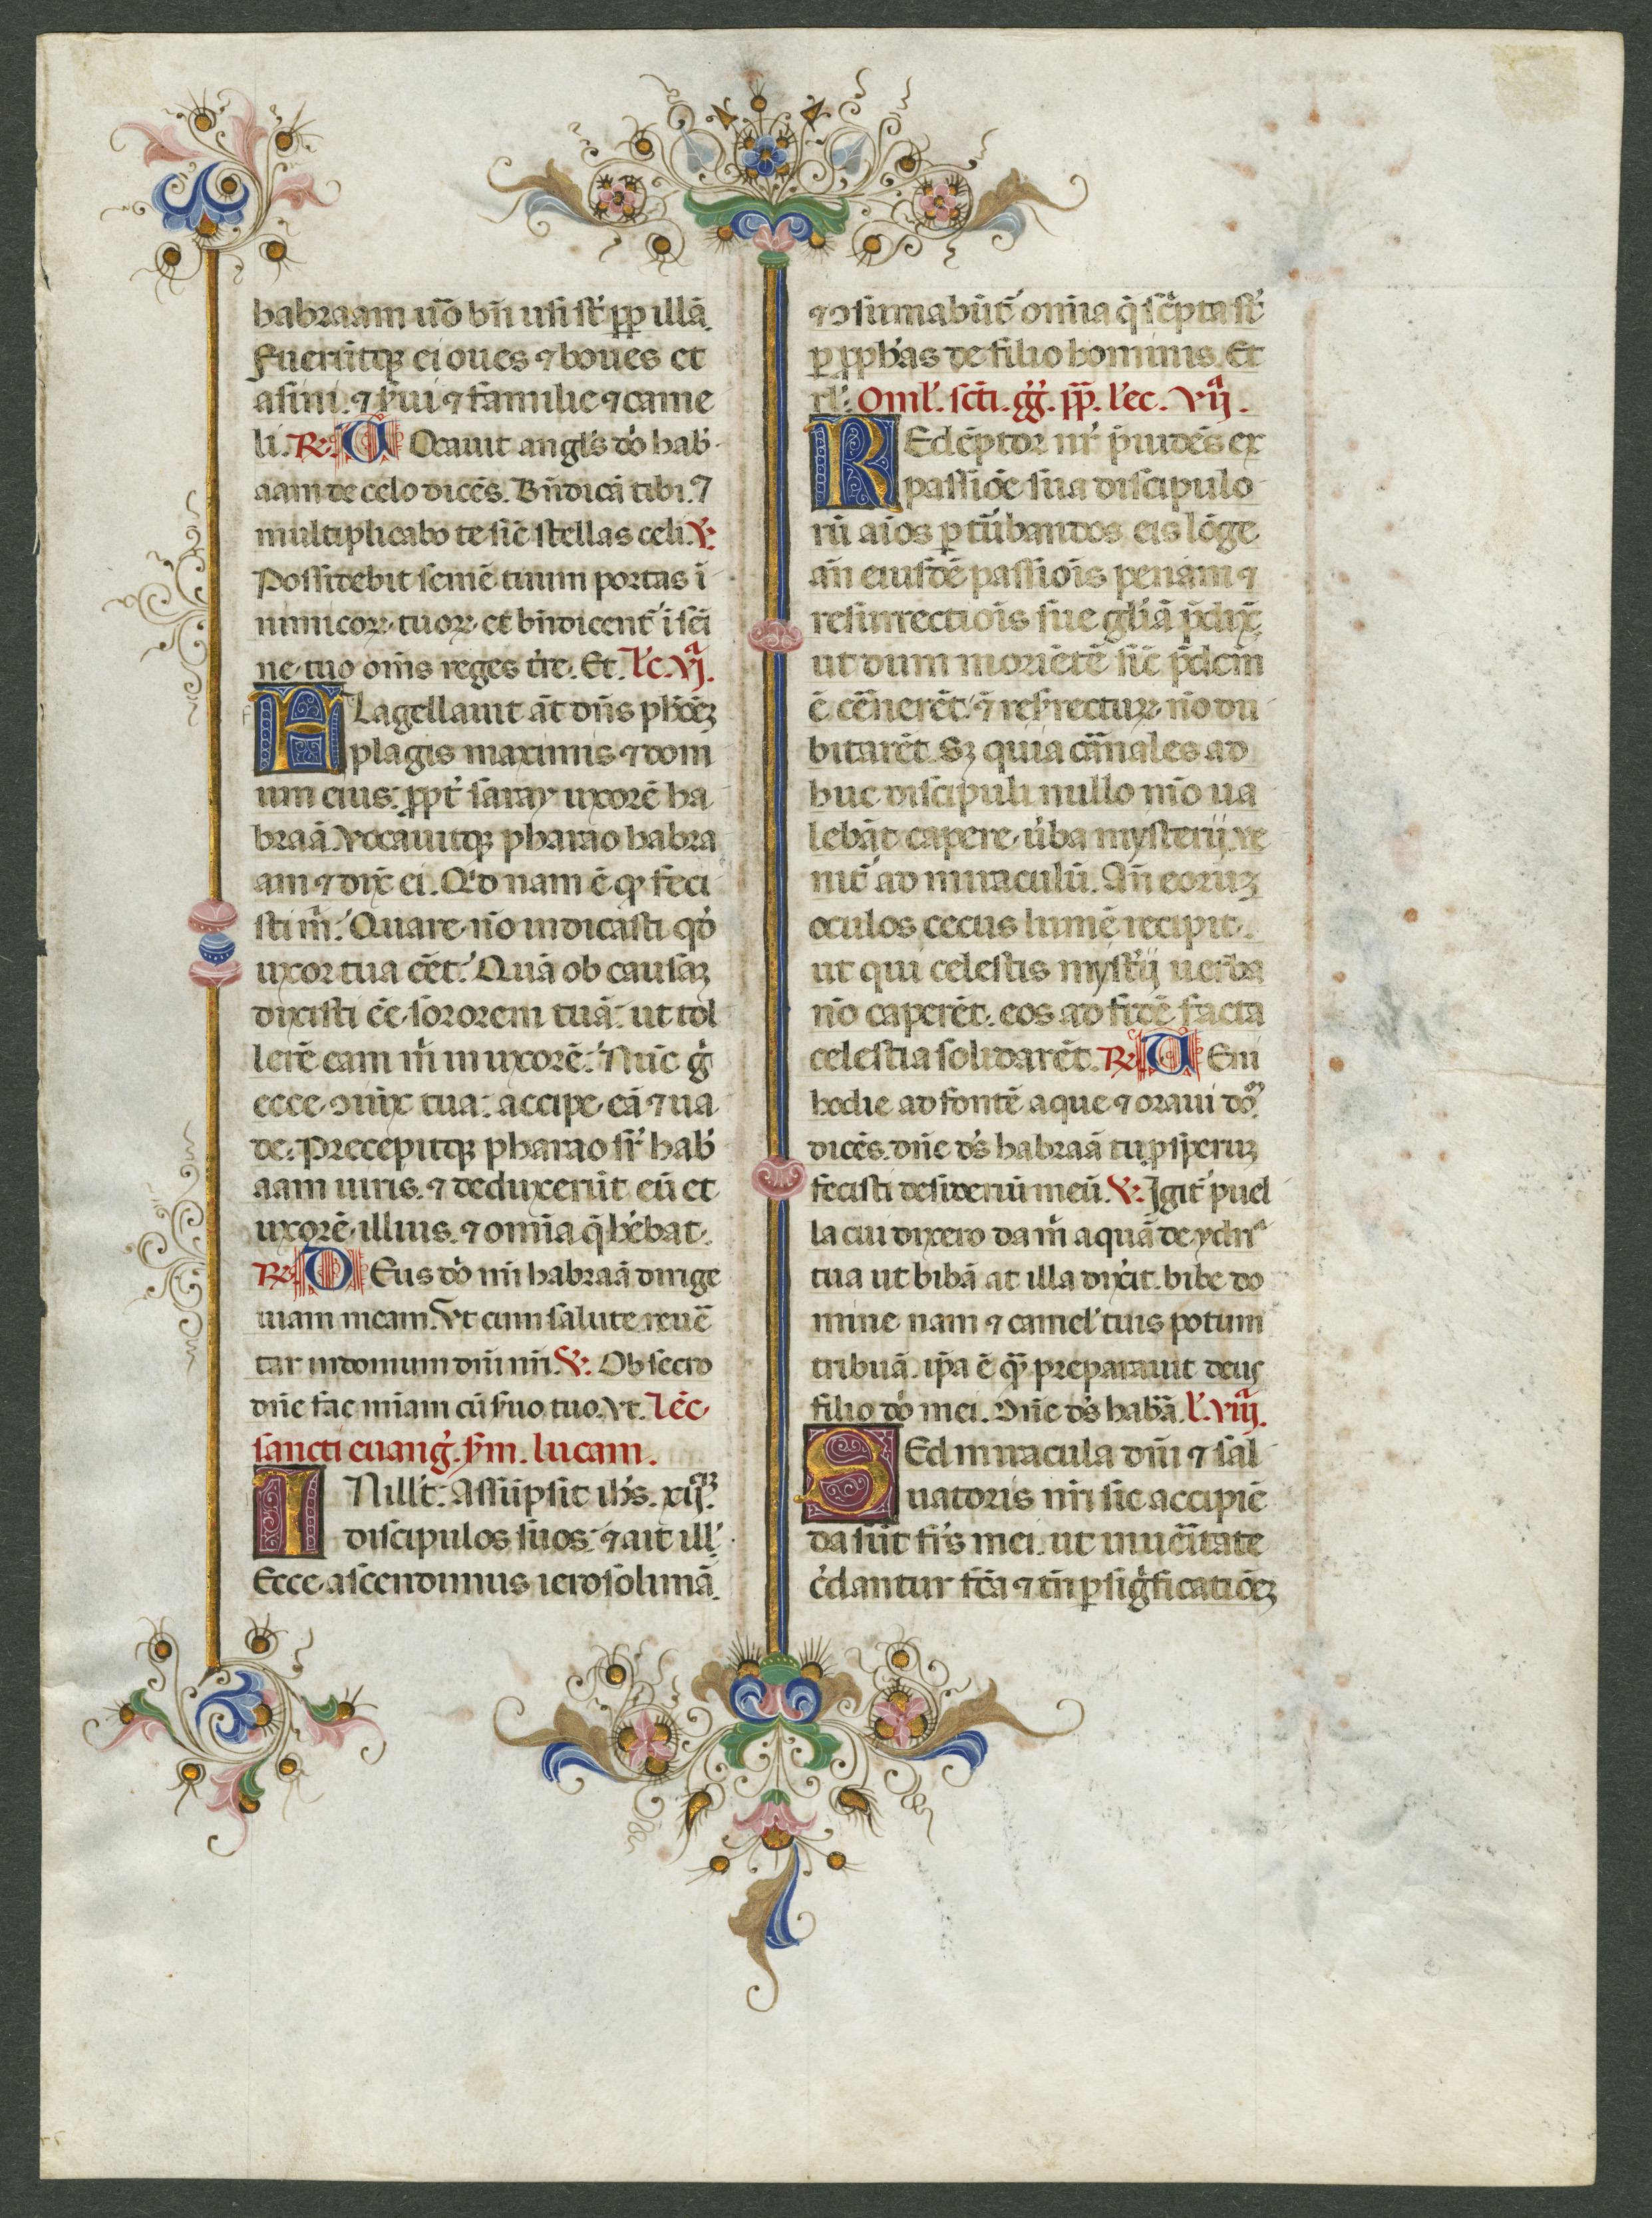 habraam uo᷃ bn᷃ usi st᷃ ꝓp illā.
Fuerūtqꝫ ei oues ⁊ boues et
asini. ⁊ s᷃ui ⁊ famulie ⁊ came
li. R͞. U Ocauit angls᷃ do᷃ hab
aam de celo dicēs. Bn᷃dicā tibi. ⁊
multiplicabo te sic᷃ stellas celi. V.
Possidebit semē tuum portas i᷃
nimicoꝝ tuoꝝ et bn᷃dicent᷃ i sei᷃
ne tuo om᷃s reges tr᷃e. Et. lc᷃. vja.
F Lagellauit āt dn᷃s phōēꝫ
plagis maximis ⁊ dom
um eius. ꝓpt᷃ saray uxorē ha
braā. Vocauitqꝫ pharao habra
am ⁊ dix᷃ ei. Qd᷃ nam ē qꝫ feci
sti m᷃. Quare no᷃ indicasti qd᷃
uxor tua eēt. Quā ob causaꝫ
dixisti eē sororem tuā. ut tol
lerē eam m᷃ in uxorē. Nūc g᷃
ecce ↄiūx tua. accipe eā ⁊ ua
de. Precepitqꝫ pharao sr᷃ hab᷃
aam uiris. ⁊ deduxerūt eū et
uxorē illius. ⁊ om᷃ia q᷃ h᷃ebat.
R͞. D Eus do᷃ mi᷃ habraā dirige
uiam meam. Vt cum salute reuē
tar in domum dn᷃i mi᷃. V. Obsecro
dn᷃e fac miam cū s᷃uo tuo. Vt. Lec᷃.
sancti euang᷃. s᷃m. lucam.
I N ill᷃ t᷃. Assūpsit ihs᷃. xij.
discipulos suos. ⁊ ait ill᷃.
Ecce ascendimus ierosolimā.
⁊ ↄsūmabūt᷃ om᷃ia q᷃ sc᷃pta st᷃
ꝑ ꝓphas de filio hominis. Et
rl᷃. Oml᷃. sct᷃i. gg᷃. pp᷃. lec᷃. vija.
R Edēptor nr᷃ p᷃uidēs ex
passiōe sua discipulo
rū aīos ꝑtūbandos eis lōge
an᷃ eiusdē passiois᷃ penam ⁊
resurrectiois᷃ sue gl᷃iā p᷃dix᷃.
ut dum moriētē sic᷃ p᷃dcm᷃
ē c᷃nerēt. ⁊ resrecturꝝ no᷃ du
bitarēt. Sꝫ quia carnales ad
huc discipuli nullo mo᷃ ua
lebāt capere u᷃ba mysterij. ue
nit᷃ ad miraculū. An᷃ eoruꝫ
oculos cecus lumē recipit.
ut qui celestis myst᷃ij uerba
no᷃ caperēt. eos ad fidē facta
celestia solidarēt. R͞. U Eni
hodie ad fontē aque ⁊ oraui do᷃
dicēs. dn᷃e ds᷃ habraā tu ꝓsperuꝫ
fecisti desiderium meū. V. Igit᷃ puel
la cui dixero da m᷃ aquā de ydria
tua ut bibā at illa dix᷃it. bibe do
mine nam ⁊ camel᷃ tuis potum
tribuā. ip᷃a ē qꝫ preparauit deus
filio do᷃ mei. Dn᷃e ds᷃ habā. l᷃. viija.
S Ed miracula dn᷃i ⁊ sal
uatoris nr᷃i sic accipiē
da sūt fr᷃s mei. ut in ueritate
c᷃dantur fc᷃a ⁊ tn᷃ ꝑ significatiōeꝫ